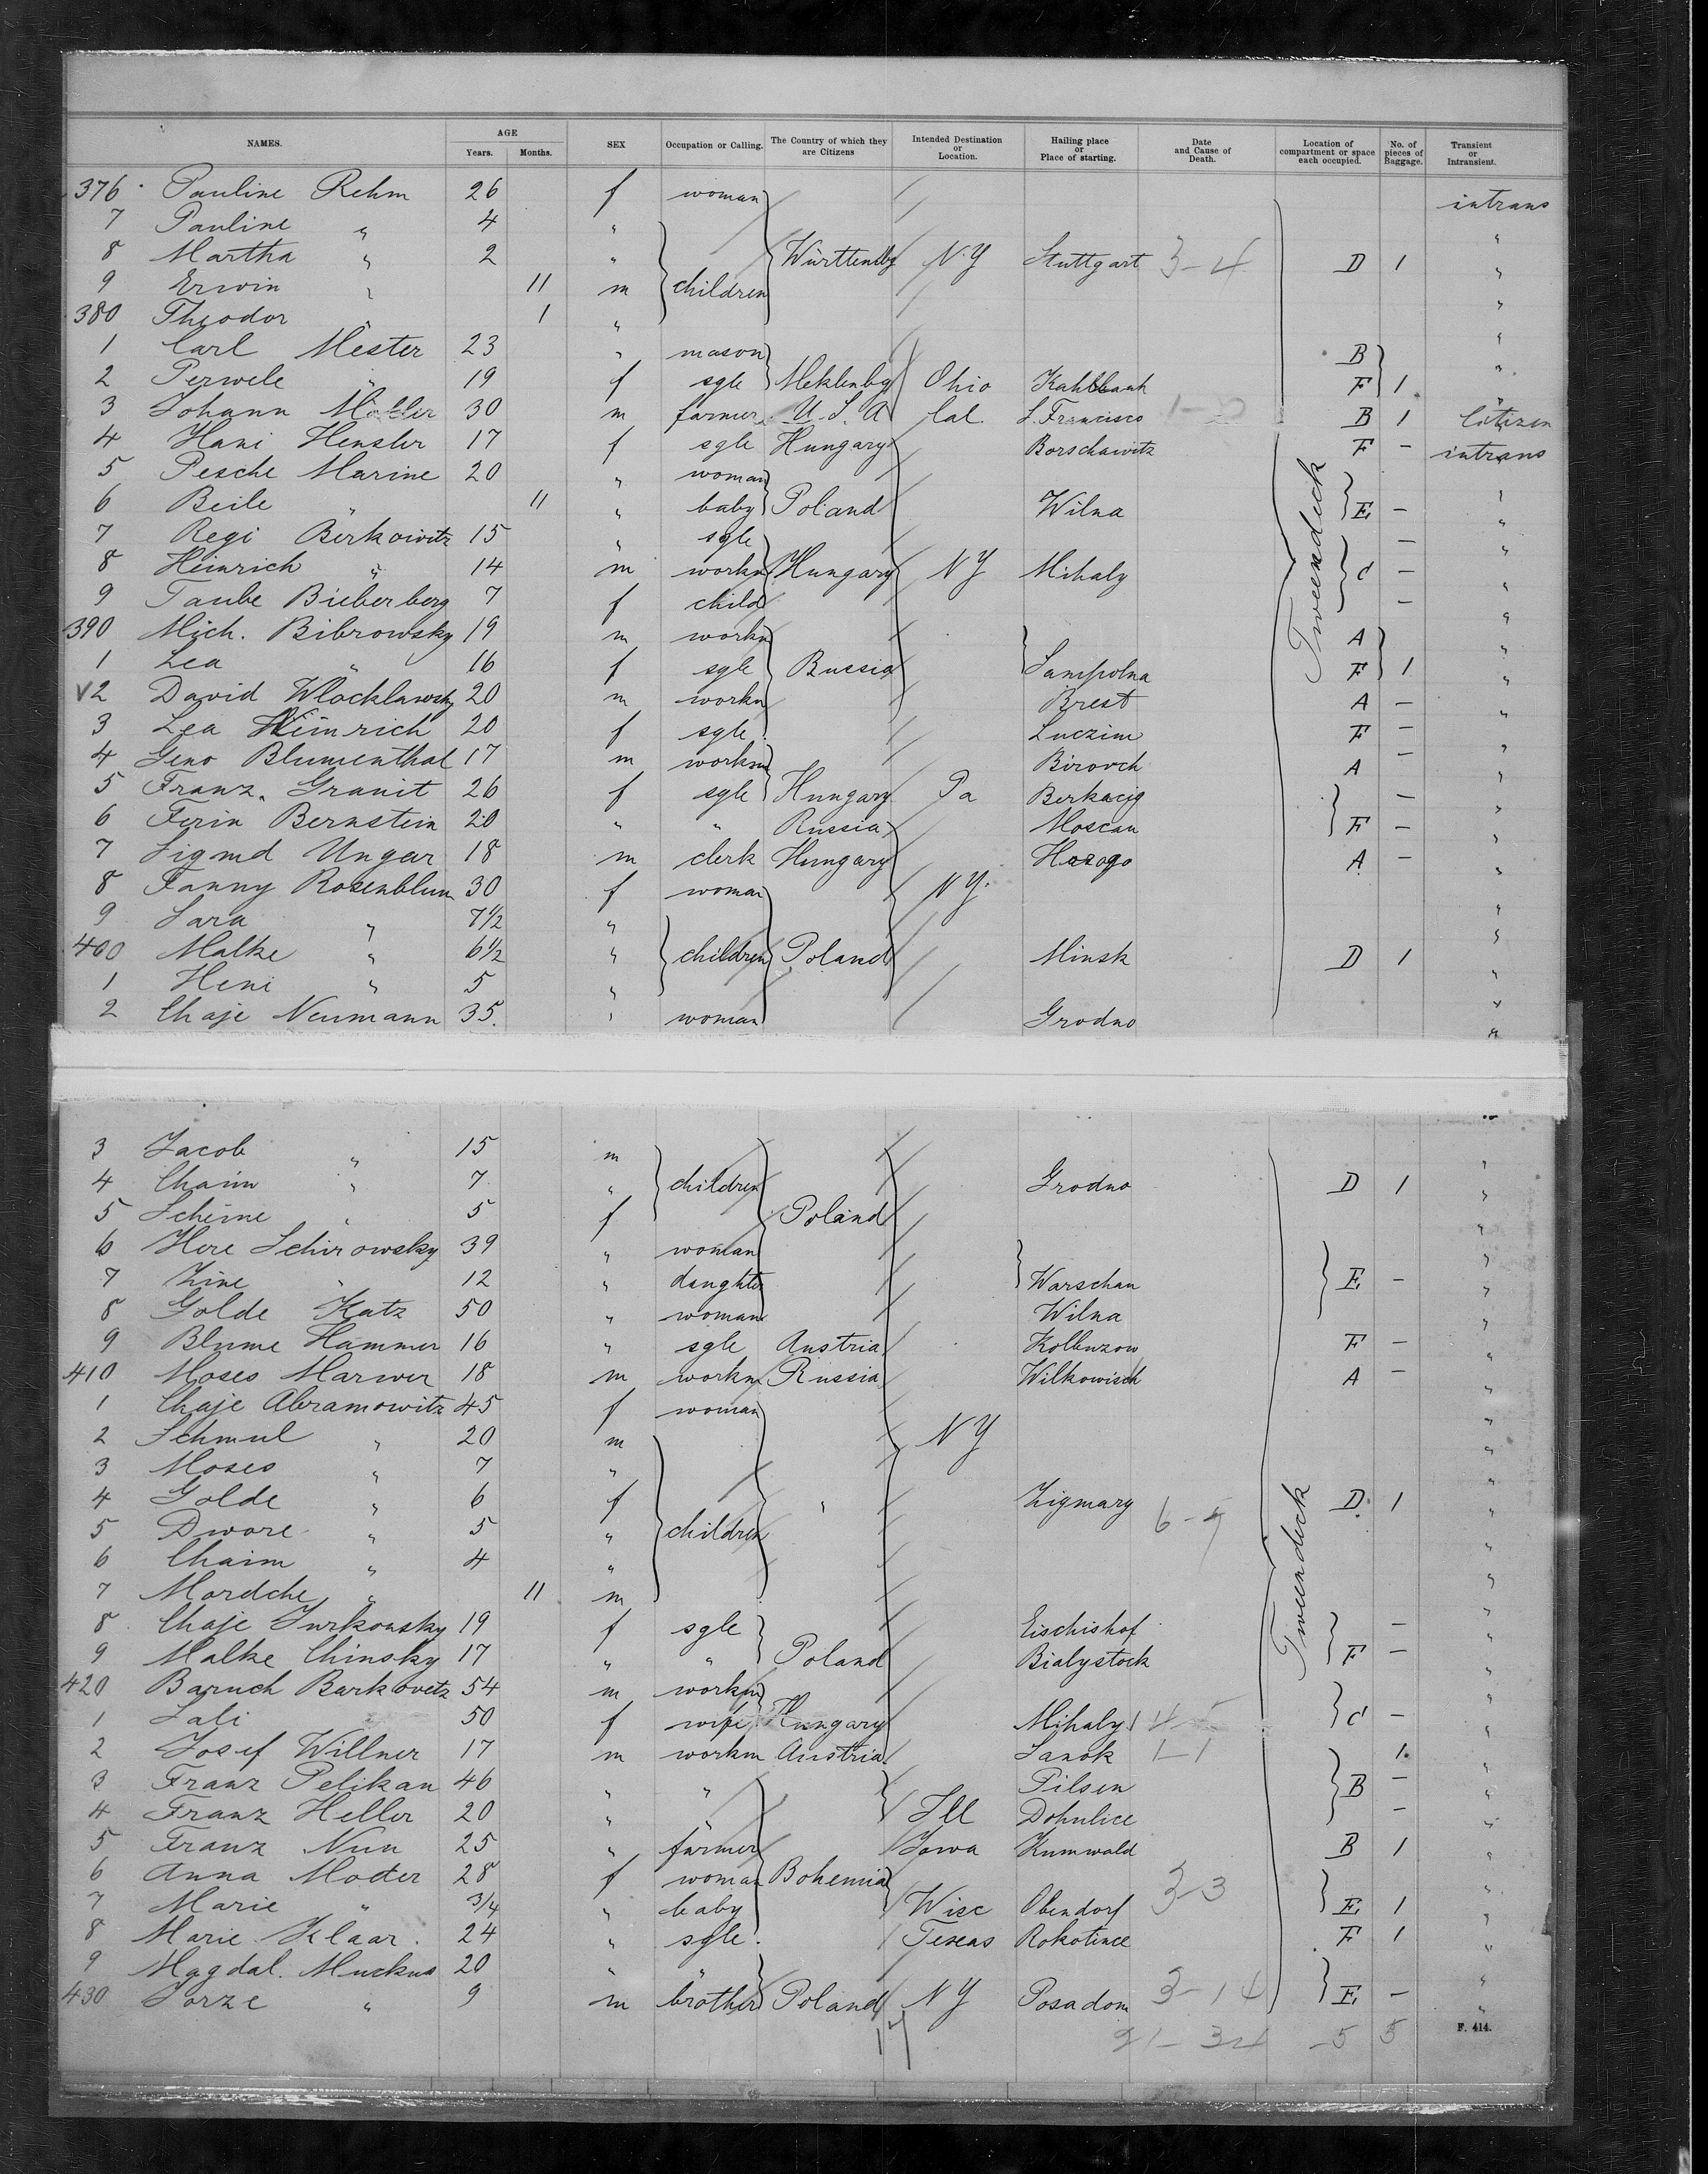 NAMES. AGE Years. Months. SEX Occupation or Calling. The Country of which they are Citizens Intended Destination or Location. Hailing place or Place of starting. Date and Cause of Death. Location of compartment or space each occupied. No. of pieces of Baggage. Transient or Intransient.
376 Pauline Rehm 26 f woman intrans
7 Pauline " 4 " "
8 Martha " 2 " Württembg N.Y Stuttgart 3-4 D 1 "
9 Erwin " 11 m children "
380 Theodor " 1 " "
1 Carl Mester 23 " mason B "
2 Perwele " 19 f sgle Meklenbg Ohio F 1 "
3 Johann Möller 30 m farmer U.S.A Cal. S. Francisco B 1 Citizen
4 Hani Hensler 17 f sgle Hungary Borschawitz F - intrans
5 Pesche Marine 20 " woman "
6 Beile " 11 " baby Poland Wilna E - "
7 Regi Berkowitz 15 " sgle - "
8 Heinrich " 14 m workm Hungary NY Mihaly C - "
9 Taube Bieberberg 7 f child - "
390 Mich. Bibrowsky 19 m workm A "
1 Lea " 16 f sgle Russia Sampolna F 1 "
V2 David Wlocklawsky 20 m workm Brest A - "
3 Lea Heimrich 20 f sgle. Luczim F - "
4 Geno Blumenthal 17 m workm Birovch A - "
5 Franz. Granit 26 f sgle Hungary Pa - "
6 Ferin Bernstein 20 " " Russia Moscau F - "
7 Sigmd Ungar 18 m clerk Hungary Hazogo A - "
8 Fanny Rosenblum 30 f woman N.Y. "
9 Sara " 7½ " "
400 Malke " 6½ " children Poland Minsk D 1 "
1 Heni " 5 " "
2 Chaje Neumann 35. " woman Grodno "
Tweendeck
3 Jacob " 15 m "
4 Chaim " 7 " children Grodno D 1 "
5 Scheine " 5 f Poland "
6 Here Schirowsky 39 " woman "
7 Zine " 12 " daughter Warschau E - "
8 Golde Katz 50 " woman Wilna "
9 Blume Hammer 16 " sgle Austria Kolbuzow F - "
410 Moses Marwer 18 m workm Russia Wilkowisch A - "
1 Chaje Abramowitz 45 f woman "
2 Schmul " 20 m NY "
3 Moses " 7 " "
4 Golde " 6 f " Zigmary D. 1 "
5 Dwore " 5 " children "
6 Chaim " 4 " "
7 Mordche " 11 m "
8 Chaje Jurkowsky 19 f sgle Eischishof - "
9 Malke Chinsky 17 " " Poland Bialystock F - "
420 Baruch Barkovetz 54 m workm "
1 Sali 50 f wife Hungary Mihaly C - "
2 Josef Willner 17 m workm Austria Sanok 1-1 1. "
3 Franz Pelikan 46 " " Pilsen B - "
4 Franz Heller 20 " " Ill Dohulice - "
5 Franz Nun 25 " farmer Iowa Kumwald B 1 "
6 Anna Moder 28 f woman Bohemia 3-3 "
7 Marie " 3/4 " baby Wisc Obendorf E 1 "
8 Marie Klaar. 24 " sgle. Texas Rokotince F 1 "
9 Magdal. Muckna 20 " " "
430 Jorze " 9 m brother Poland NY Posadom 3-14 E - "
Tweendeck
17 91-34 -5 5 F. 414.